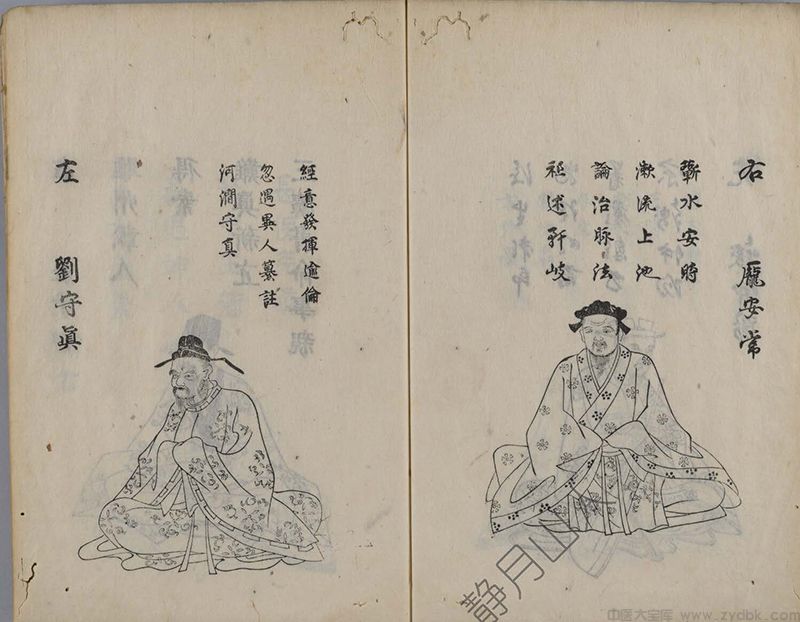 右 龐安常
蘄水安時
漱流上池
論治脉法
祖述軒岐
左 劉守眞
河澗守真
忽遇異人纂註
經意發揮逾倫
静月山
中医大宝库 www.zydbk.com